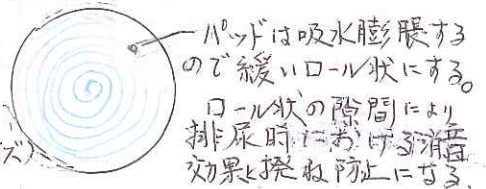 パッドは吸水膨脹する
ので緩いロール状にする。
ロール状の隙間により
排尿時における消音
効果と撥ね防止になる.
ズ)